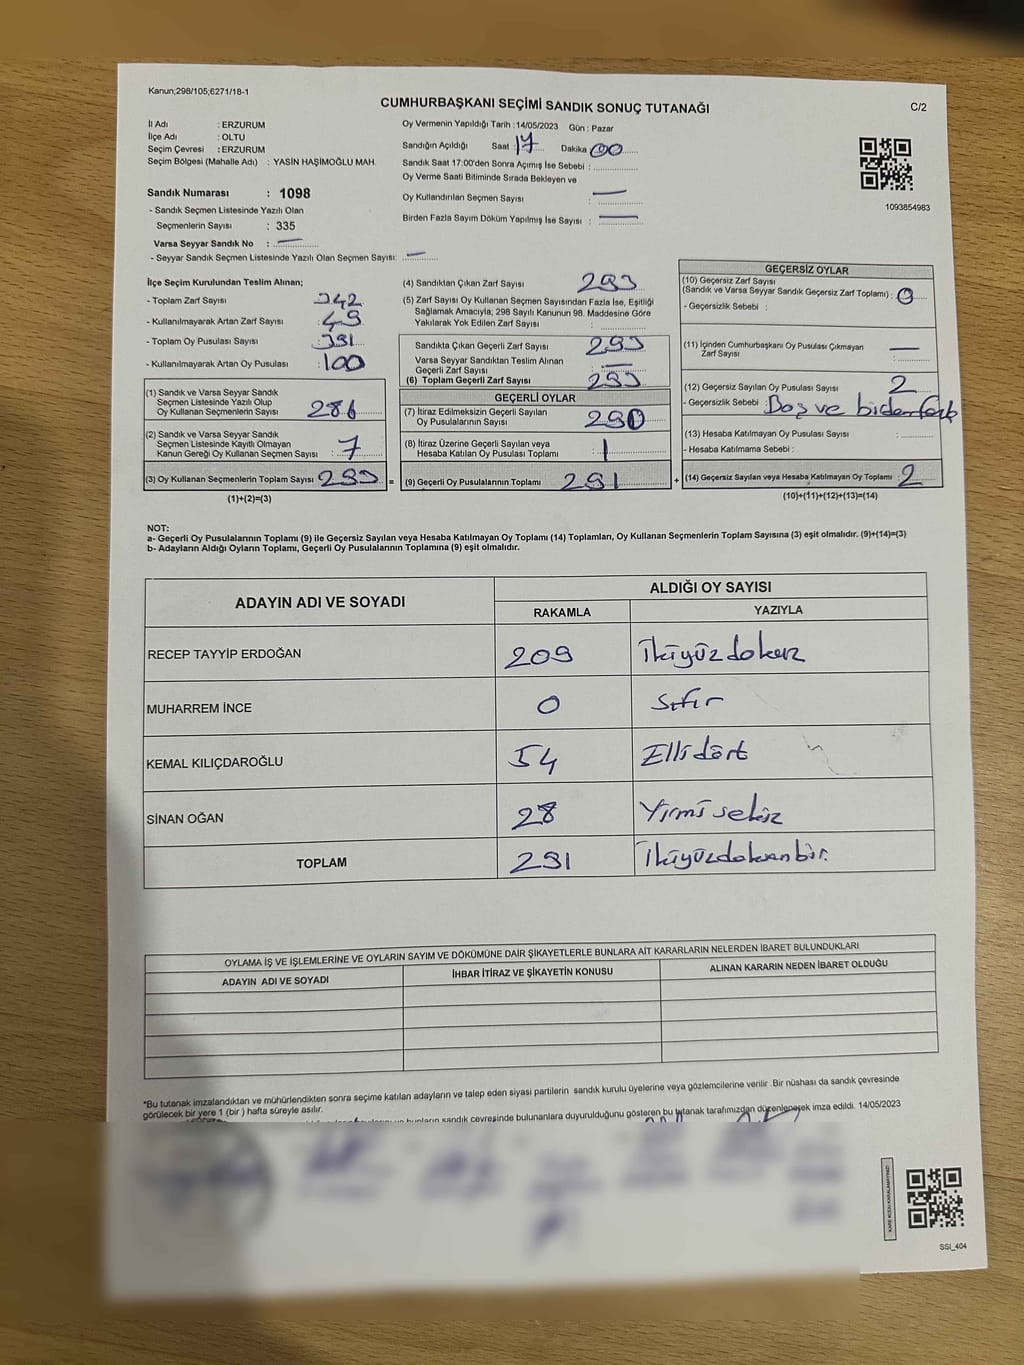 Kanun;298/105;6271/18-1
CUMHURBAŞKANI SEÇİMİ SANDIK SONUÇ TUTANAĞI
C/2
İl Adı : ERZURUM
İlçe Adı : OLTU
Seçim Çevresi : ERZURUM
Seçim Bölgesi (Mahalle Adı) : YASİN HAŞİMOĞLU MAH.
Sandık Numarası : 1098
- Sandık Seçmen Listesinde Yazılı Olan
Seçmenlerin Sayısı : 335
Varsa Seyyar Sandık No : —
- Seyyar Sandık Seçmen Listesinde Yazılı Olan Seçmen Sayısı: —
Oy Vermenin Yapıldığı Tarih : 14/05/2023 Gün : Pazar
Sandığın Açıldığı Saat 17 Dakika 00
Sandık Saat 17:00'den Sonra Açımış İse Sebebi :
Oy Verme Saati Bitiminde Sırada Bekleyen ve
Oy Kullandırılan Seçmen Sayısı : —
Birden Fazla Sayım Döküm Yapılmış İse Sayısı : —
1093854983
İlçe Seçim Kurulundan Teslim Alınan;
- Toplam Zarf Sayısı : 342
- Kullanılmayarak Artan Zarf Sayısı : 49
- Toplam Oy Pusulası Sayısı : 391
- Kullanılmayarak Artan Oy Pusulası : 100
(1) Sandık ve Varsa Seyyar Sandık
Seçmen Listesinde Yazılı Olup
Oy Kullanan Seçmenlerin Sayısı : 286
(2) Sandık ve Varsa Seyyar Sandık
Seçmen Listesinde Kayıtlı Olmayan
Kanun Gereği Oy Kullanan Seçmen Sayısı : 7
(3) Oy Kullanan Seçmenlerin Toplam Sayısı : 293 =
(1)+(2)=(3)
(4) Sandıktan Çıkan Zarf Sayısı : 293
(5) Zarf Sayısı Oy Kullanan Seçmen Sayısından Fazla İse, Eşitliği
Sağlamak Amacıyla; 298 Sayılı Kanunun 98. Maddesine Göre
Yakılarak Yok Edilen Zarf Sayısı :
Sandıkta Çıkan Geçerli Zarf Sayısı : 293
Varsa Seyyar Sandıktan Teslim Alınan
Geçerli Zarf Sayısı : —
(6) Toplam Geçerli Zarf Sayısı : 293
GEÇERLİ OYLAR
(7) İtiraz Edilmeksizin Geçerli Sayılan
Oy Pusulalarının Sayısı : 290
(8) İtiraz Üzerine Geçerli Sayılan veya
Hesaba Katılan Oy Pusulası Toplamı : 1
(9) Geçerli Oy Pusulalarının Toplamı : 291 +
GEÇERSİZ OYLAR
(10) Geçersiz Zarf Sayısı
(Sandık ve Varsa Seyyar Sandık Geçersiz Zarf Toplamı) : 0
- Geçersizlik Sebebi :
(11) İçinden Cumhurbaşkanı Oy Pusulası Çıkmayan
Zarf Sayısı : —
(12) Geçersiz Sayılan Oy Pusulası Sayısı : 2
- Geçersizlik Sebebi : Boş ve birden fazla
(13) Hesaba Katılmayan Oy Pusulası Sayısı :
- Hesaba Katılmama Sebebi :
(14) Geçersiz Sayılan veya Hesaba Katılmayan Oy Toplamı : 2
(10)+(11)+(12)+(13)=(14)
NOT:
a- Geçerli Oy Pusulalarının Toplamı (9) ile Geçersiz Sayılan veya Hesaba Katılmayan Oy Toplamı (14) Toplamları, Oy Kullanan Seçmenlerin Toplam Sayısına (3) eşit olmalıdır. (9)+(14)=(3)
b- Adayların Aldığı Oyların Toplamı, Geçerli Oy Pusulalarının Toplamına (9) eşit olmalıdır.
ADAYIN ADI VE SOYADI
ALDIĞI OY SAYISI
RAKAMLA YAZIYLA
RECEP TAYYİP ERDOĞAN 209 İkiyüzdokuz
MUHARREM İNCE 0 Sıfır
KEMAL KILIÇDAROĞLU 54 Ellidört
SİNAN OĞAN 28 Yirmisekiz
TOPLAM 291 İkiyüzdoksanbir.
OYLAMA İŞ VE İŞLEMLERİNE VE OYLARIN SAYIM VE DÖKÜMÜNE DAİR ŞİKAYETLERLE BUNLARA AİT KARARLARIN NELERDEN İBARET BULUNDUKLARI
ADAYIN ADI VE SOYADI İHBAR İTİRAZ VE ŞİKAYETİN KONUSU ALINAN KARARIN NEDEN İBARET OLDUĞU
*Bu tutanak imzalandıktan ve mühürlendikten sonra seçime katılan adayların ve talep eden siyasi partilerin sandık kurulu üyelerine veya gözlemcilerine verilir .Bir nüshası da sandık çevresinde
görülecek bir yere 1 (bir ) hafta süreyle asılır.
bunların sandık çevresinde bulunanlara duyurulduğunu gösteren bu tutanak tarafımızdan düzenlenerek imza edildi. 14/05/2023
SSI_404